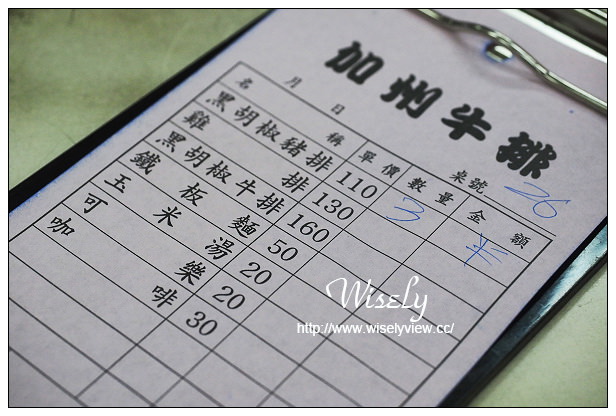 加州牛排
月 日 桌號 26
名稱 單價 數量 金額
黑胡椒豬排 110 3
雞排 130
黑胡椒牛排 160
鐵板麵 50
玉米湯 20
可樂 20
咖啡 30
Wisely
http://www.wiselyview.cc/